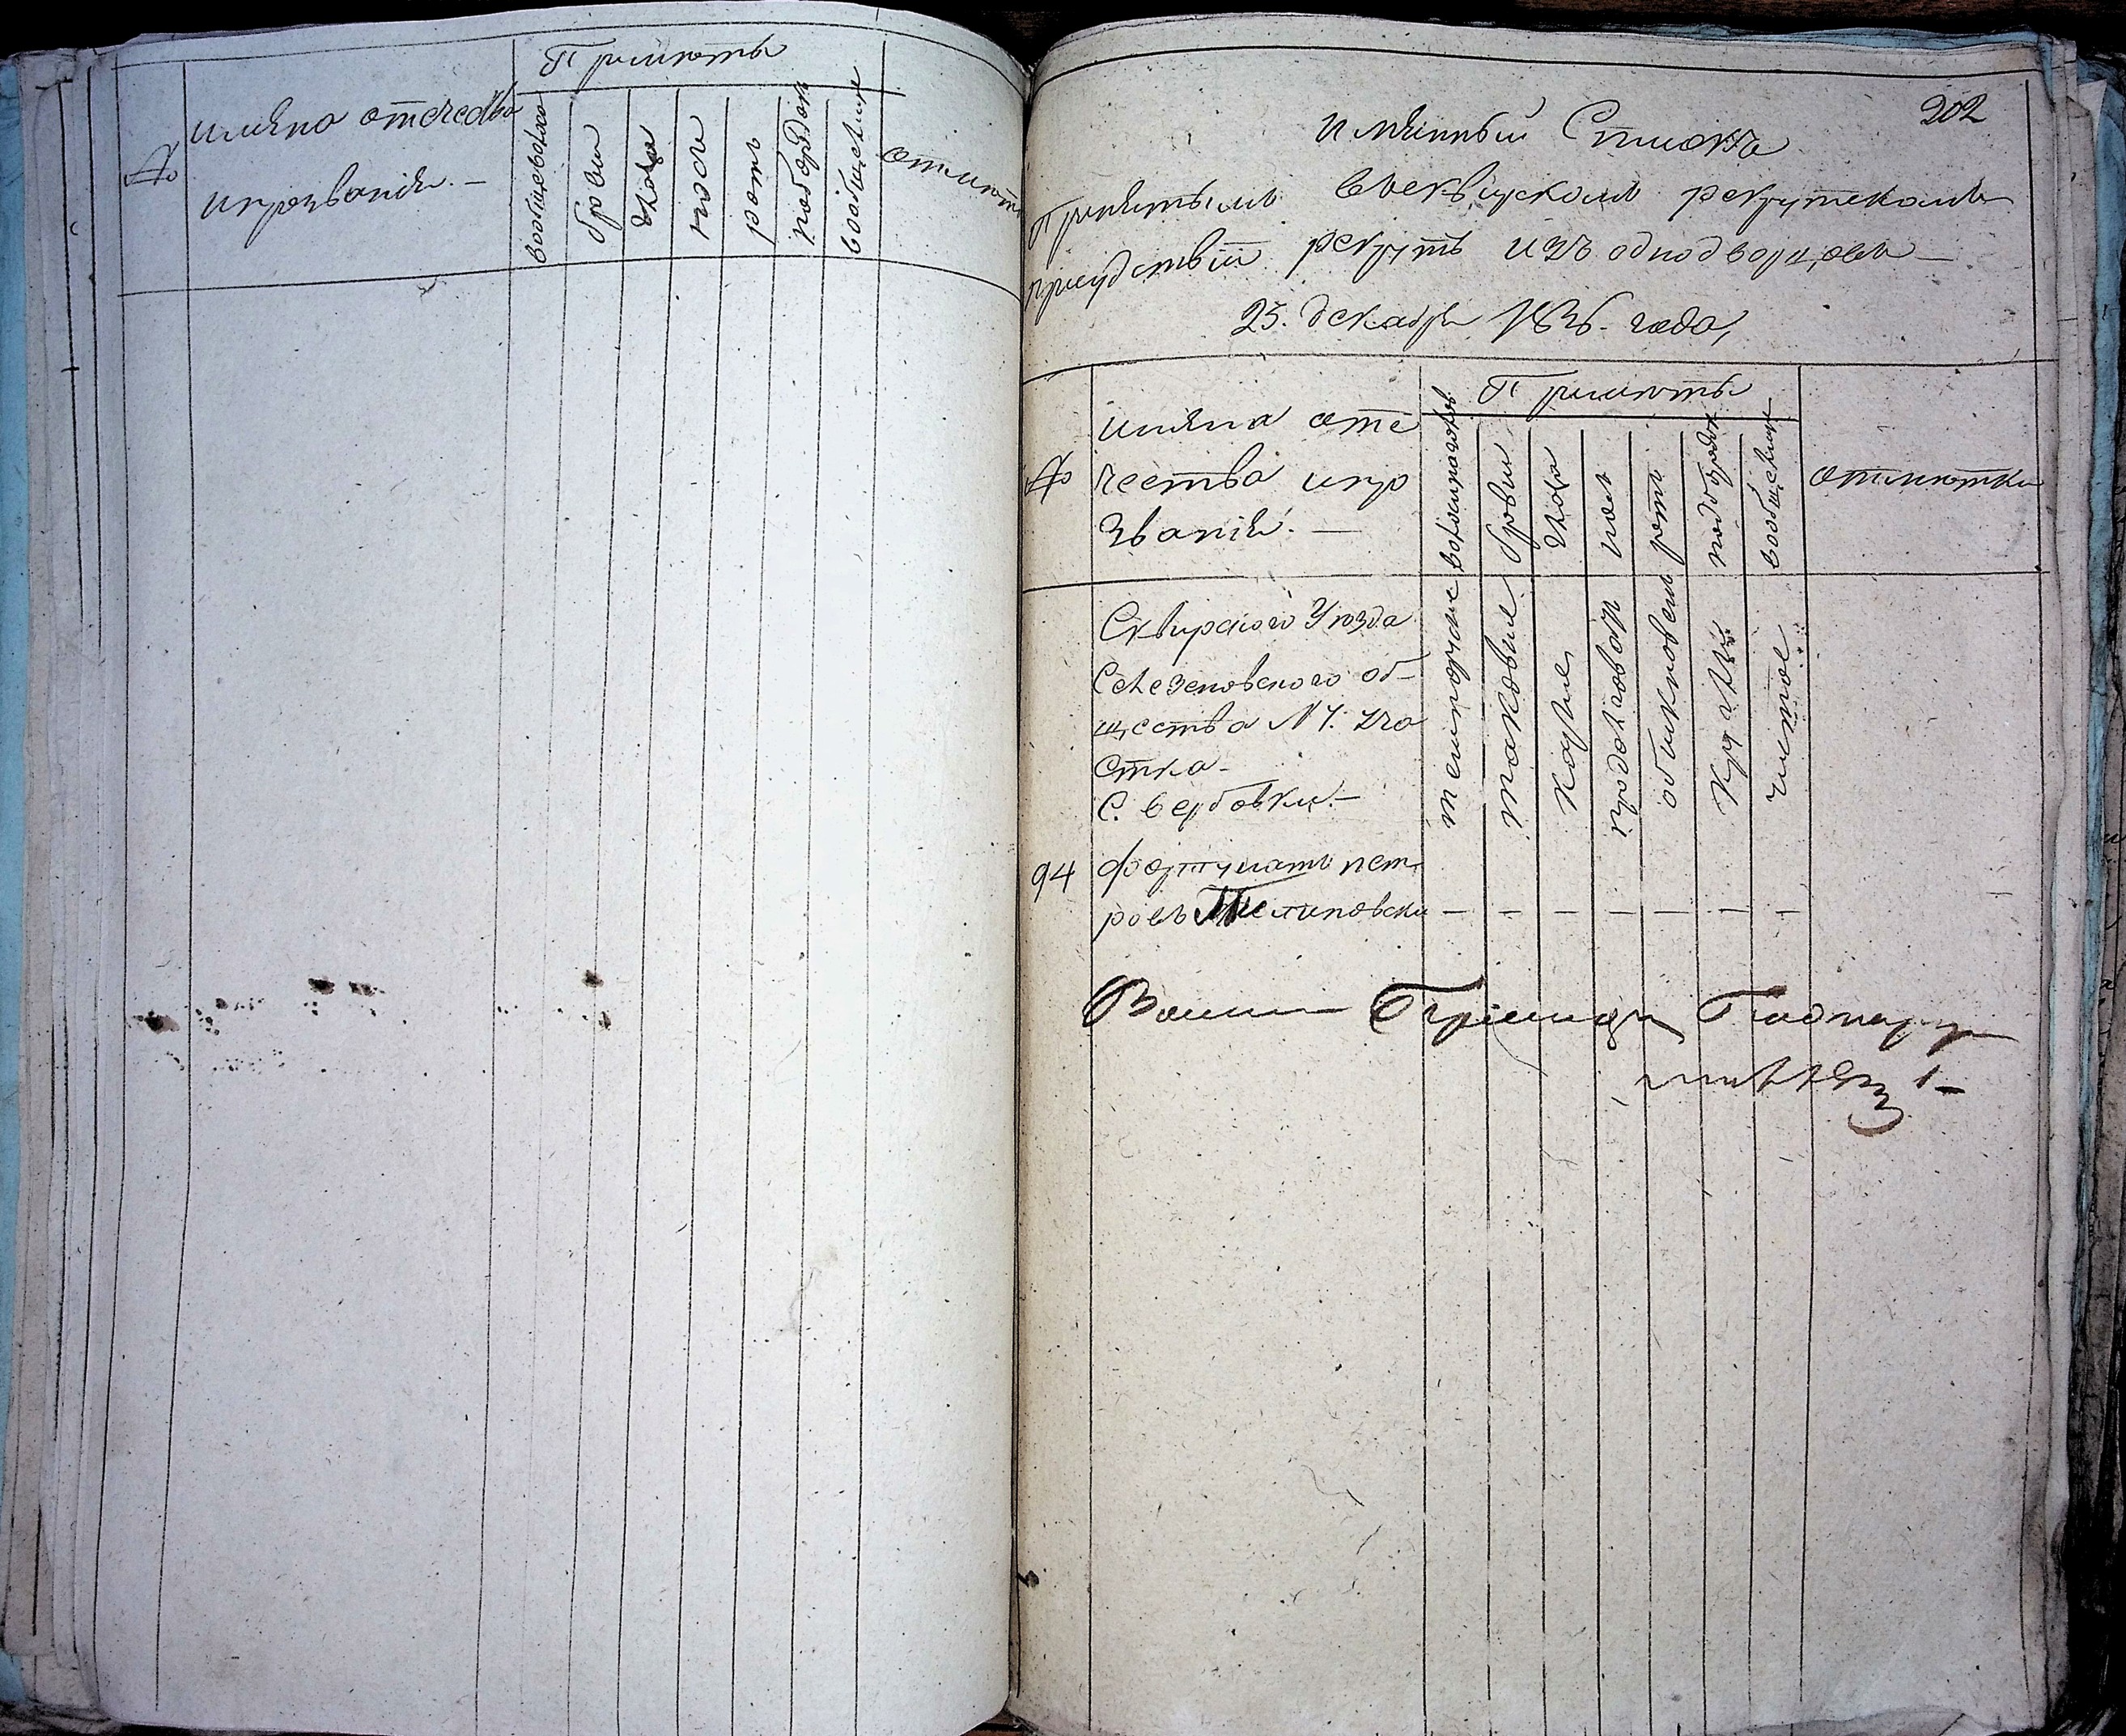 №
имяна отечедва
ипрозванія. —
Примюты
вообще волоса
брови
глаза
носа
ротъ
подбордок
вообще лице
отмют
202
имянный Списокъ
Принятымъ в Сквирском рекрутскомъ
присудствіи рекрутъ изъ однодворцовъ —
25. декабря 1836. года,
№
имяна оте
чества ипро
званія. —
Примюты
волосы
брови
глаза
нос
ротъ
подбородок
вообще лице
отмютки
Сквирского Уюзда
Селезеновского об-
щества №1. уча
стка-
С. вербовки. —
темнорусые
таковые
карые
продолговат
обыкновен
круглый
чистое
94
фортунатъ пет-
ровъ
— — — — — — —